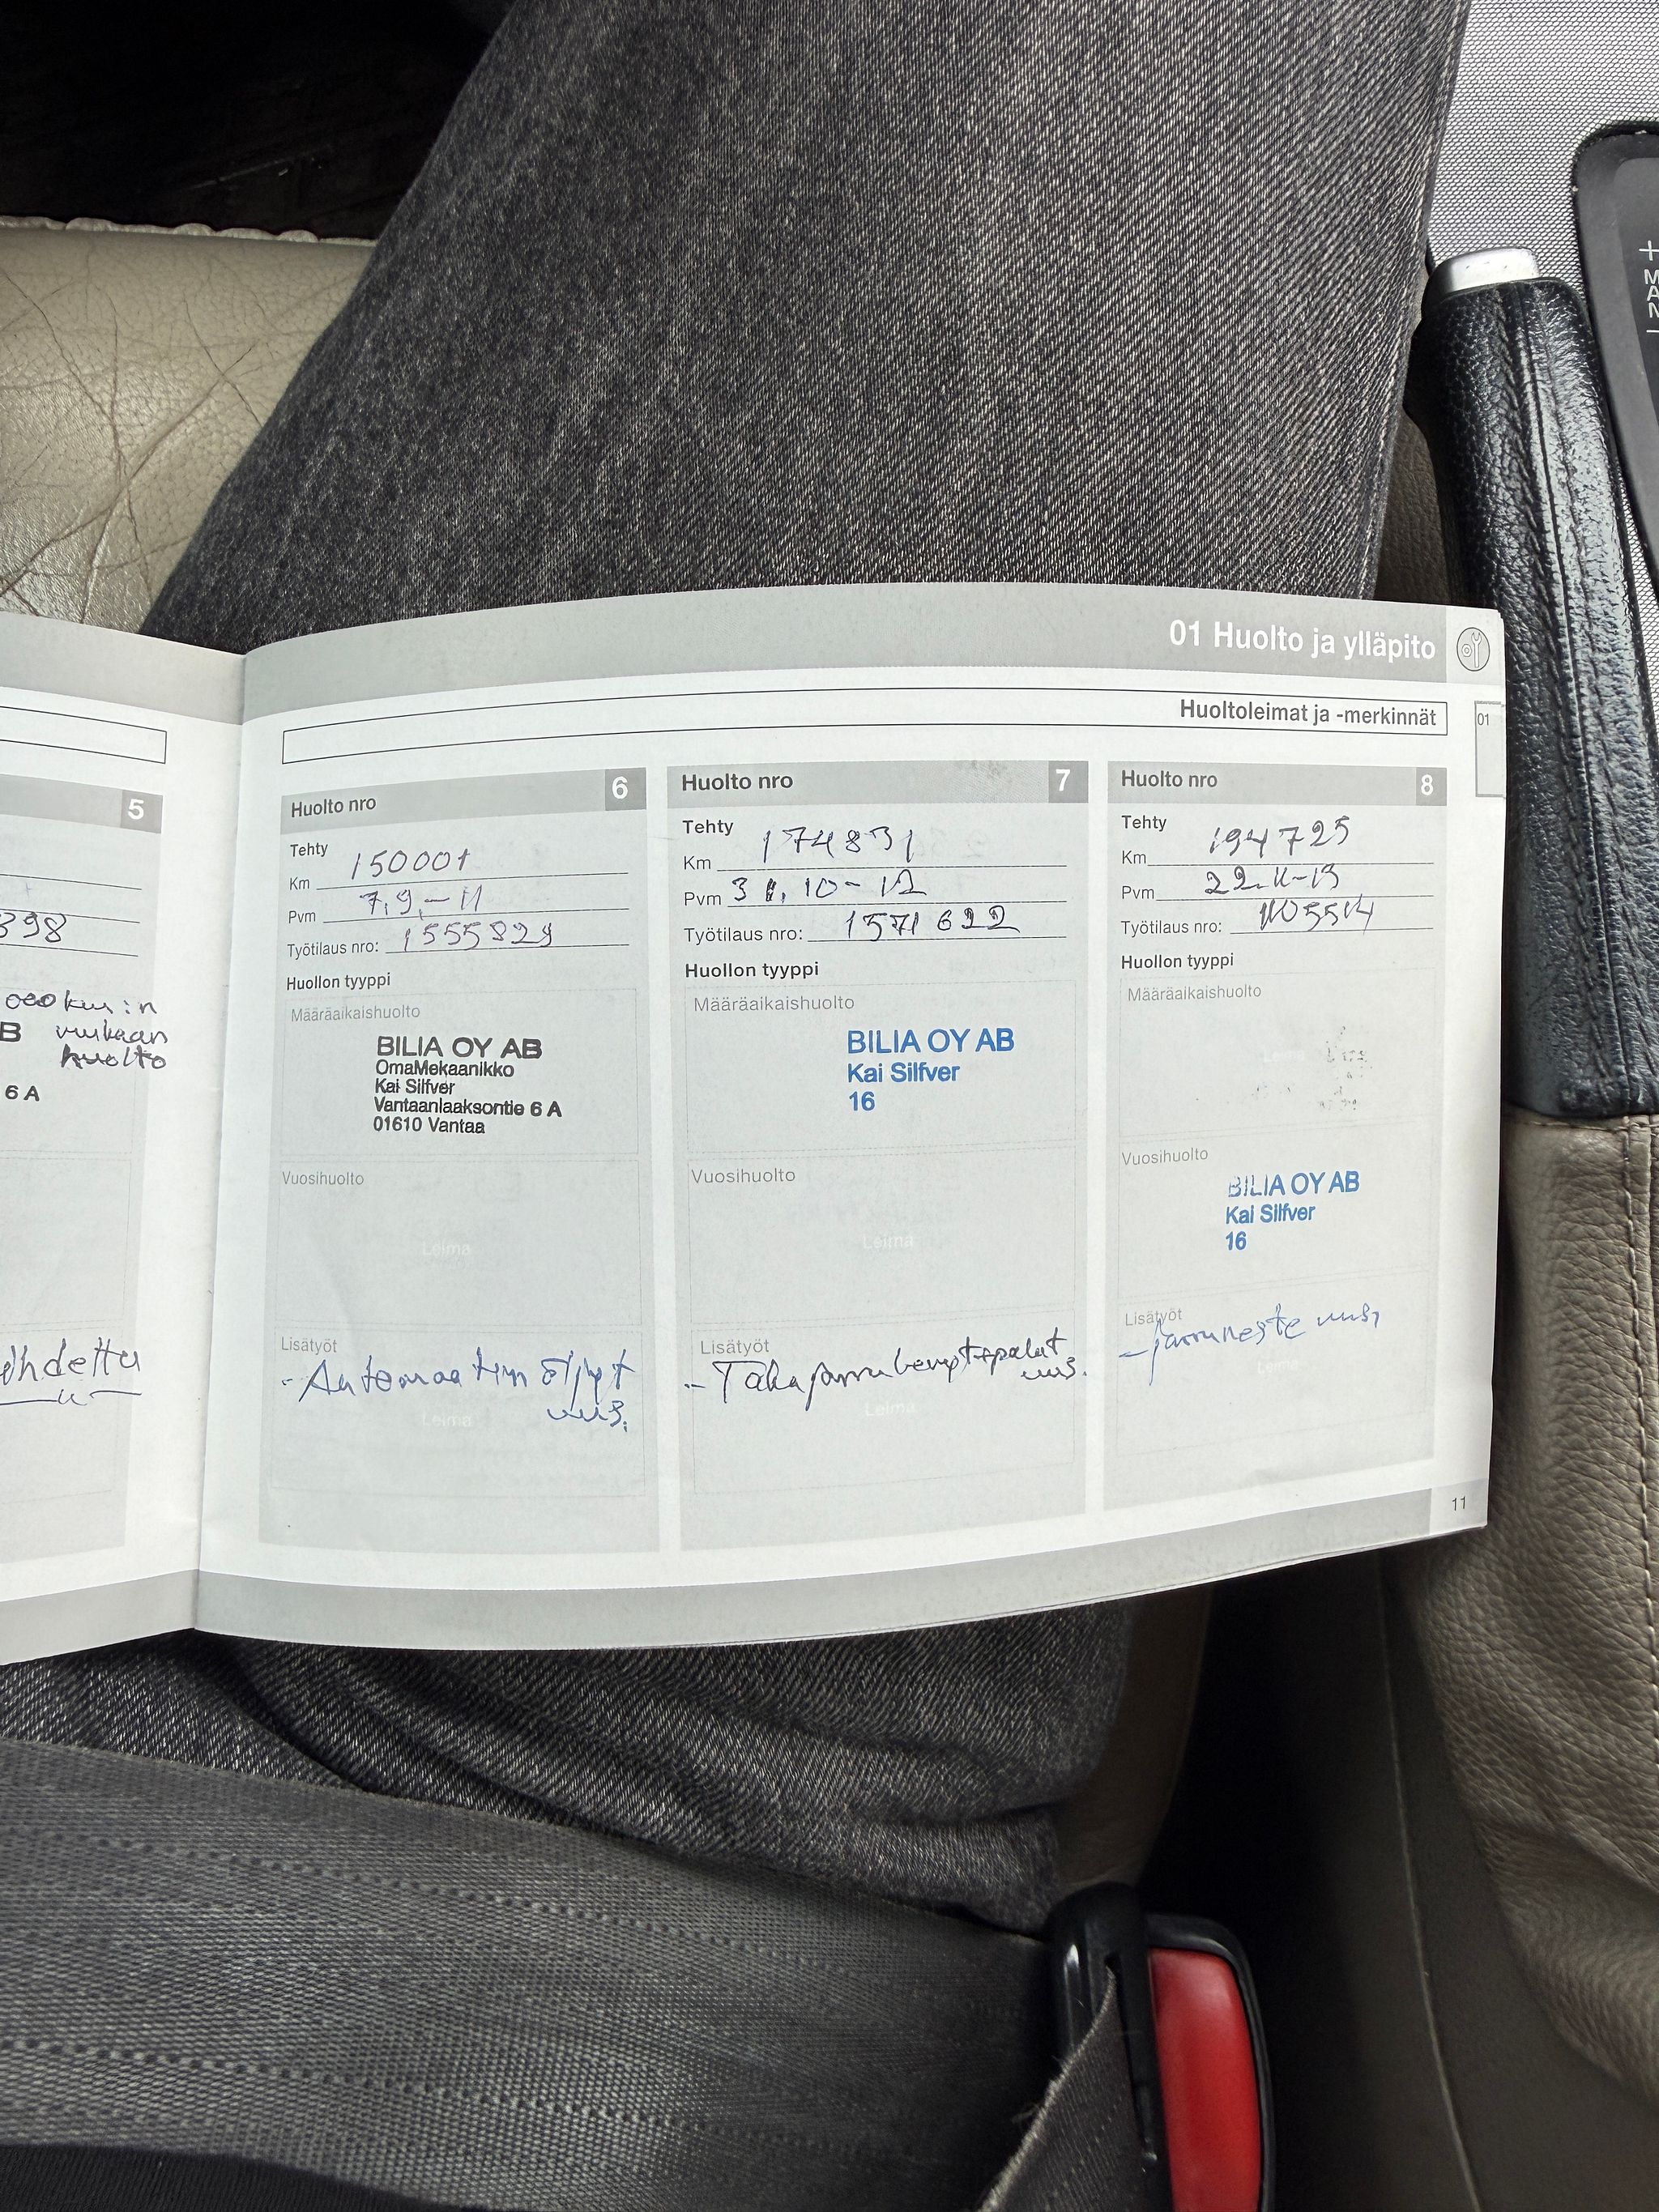 01 Huolto ja ylläpito
Huoltoleimat ja -merkinnät
01
5
398
000 km:n
B mukaan
huolto
6 A
Huolto nro 6
Tehty
Km 150001
Pvm 7.9.-11
Työtilaus nro: 1555829
Huollon tyyppi
Määräaikaishuolto
BILIA OY AB
OmaMekaanikko
Kai Silfver
Vantaanlaaksontie 6 A
01610 Vantaa
Vuosihuolto
Leima
Lisätyöt
- Automaatin öljyt
uus.
Leima
Huolto nro 7
Tehty
Km 174831
Pvm 31.10-12
Työtilaus nro: 1571622
Huollon tyyppi
Määräaikaishuolto
BILIA OY AB
Kai Silfver
16
Vuosihuolto
Leima
Lisätyöt
- Takajarrukenkäpalat
uus.
Leima
Huolto nro 8
Tehty
Km 194725
Pvm 22.11-13
Työtilaus nro:
Huollon tyyppi
Määräaikaishuolto
Leima
Vuosihuolto
BILIA OY AB
Kai Silfver
16
Lisätyöt
- jarruneste uus,
Leima
11
+
M
A
N
–